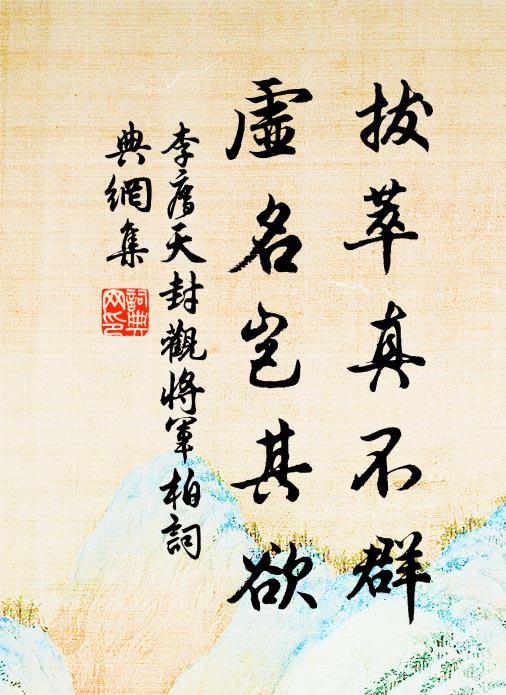 拔萃真不群
虛名豈其欲
李廌天封觀將軍柏詞
典網集
詞典
网印